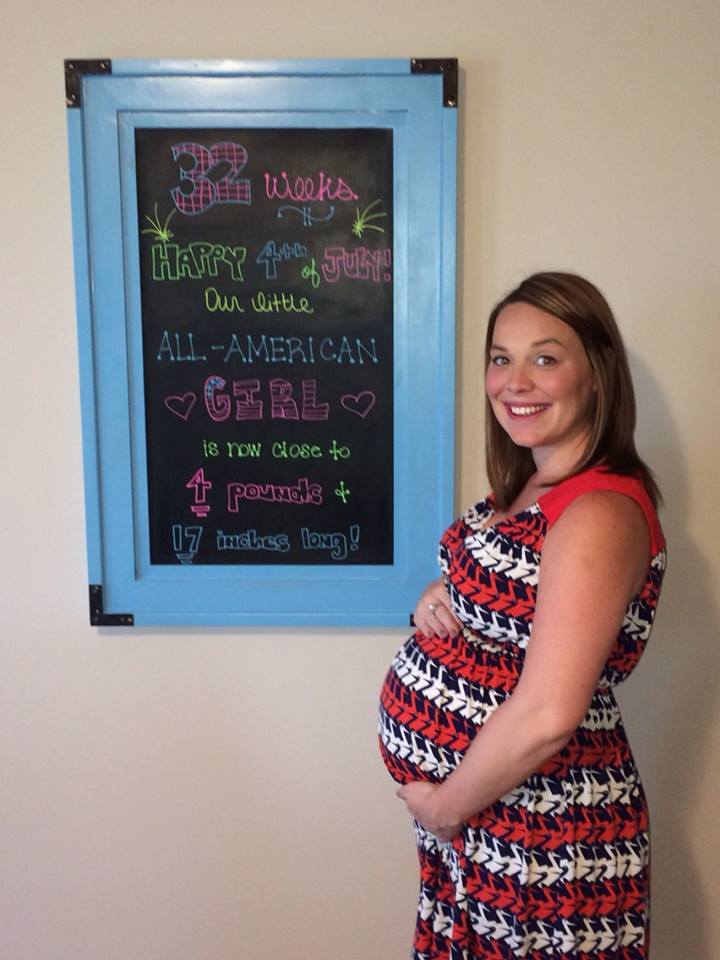 32 Weeks
HAPPY 4th of JULY!
Our little
ALL-AMERICAN
GIRL
is now close to
4 pounds +
17 inches long!